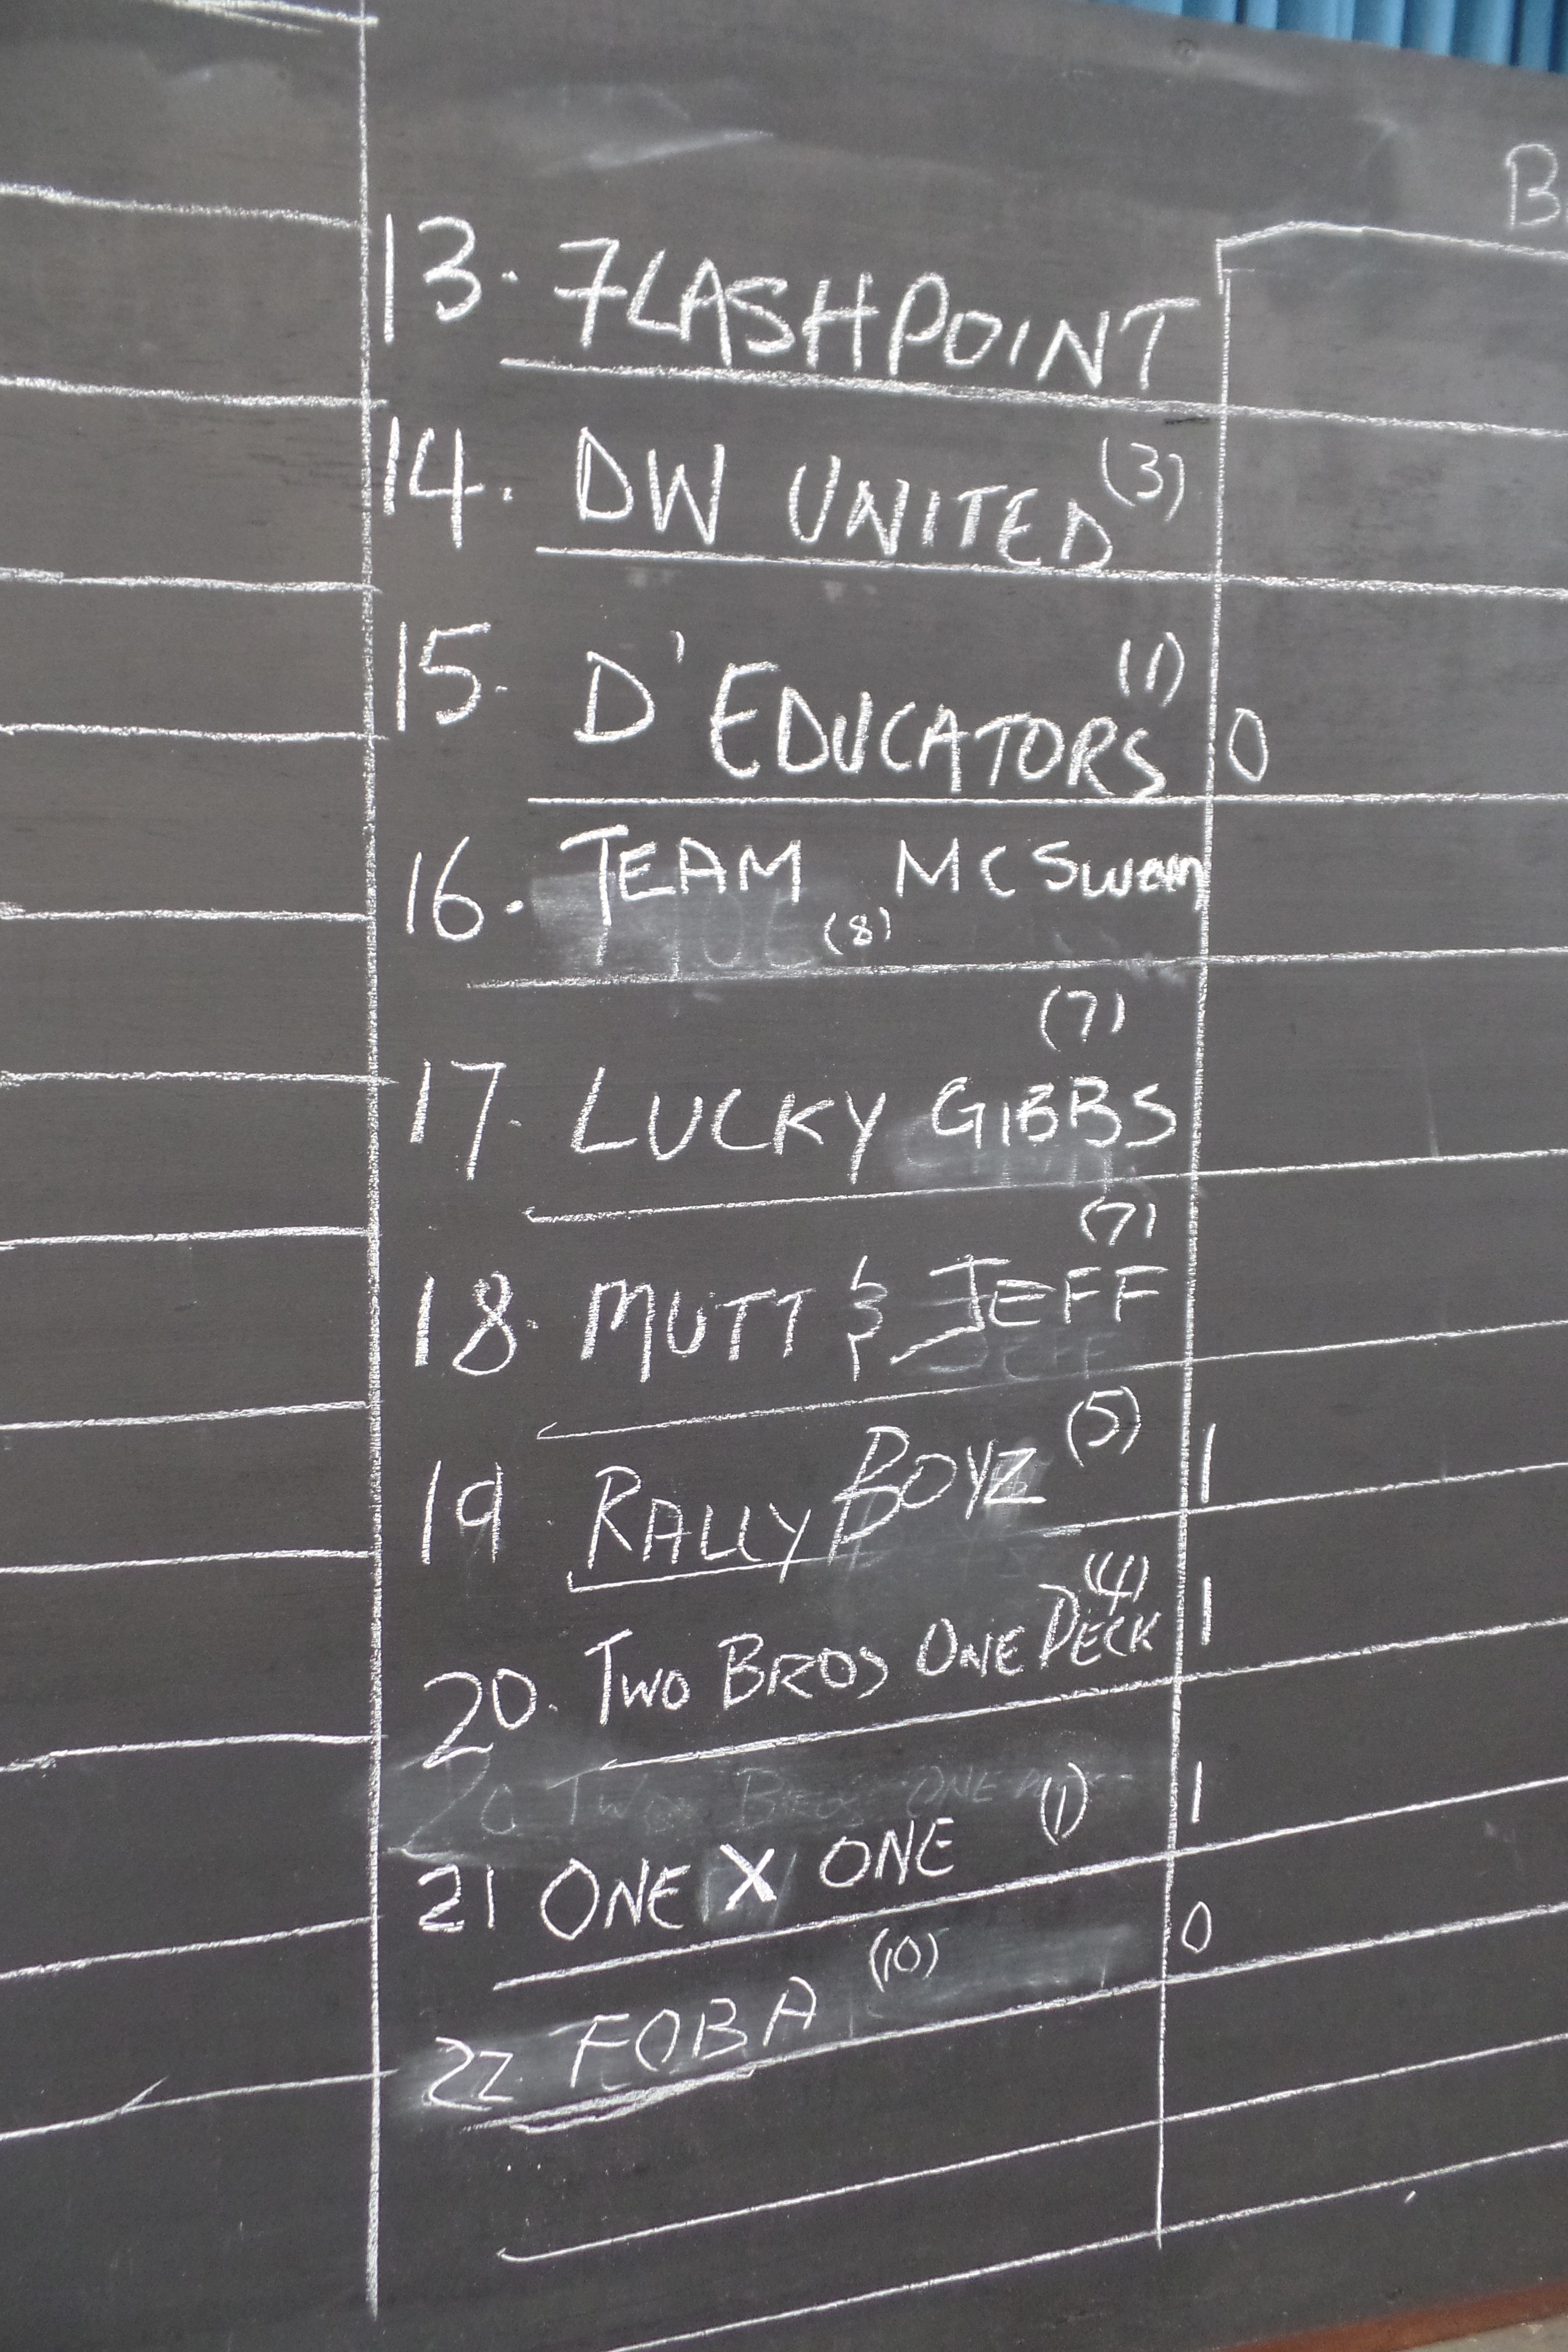 B
13. FLASHPOINT
14. DW UNITED (3)
15. D'EDUCATORS (1) 0
16. TEAM MCSwain (8)
17. LUCKY GIBBS (7)
18. MUTT & JEFF (7)
JEFF
19 RALLY BOYZ (5) 1
20. TWO BROS ONE DECK (4) 1
20 TWO BROS ONE
21 ONE X ONE (1) 1
22. FOBA (10) 0